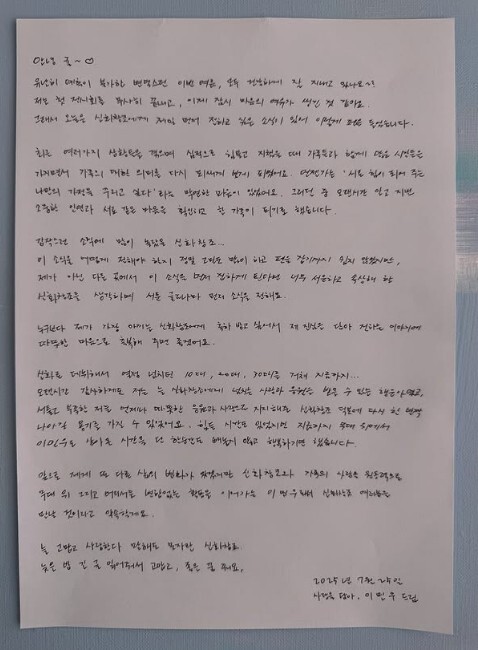 안녕 ~ ♡
유난히 변덕스런 이번 여름, 모두 건강하게 잘 지내고 있나요~?
저는 첫 전시회를 무사히 끝내고, 이제 잠시 마음의 여유가 생긴 것 같아요.
그래서 오늘은 신화창조에게 제일 먼저 전하고 싶은 소식이 있어 이렇게 펜을 들었습니다.
최근 여러가지 상황들을 겪으며 심적으로 힘들고 지쳤을 때 가족들과 함께 했던 시간들은
가지면서 가족의 대한 의미를 다시 되새기게 되었어요. 언젠가는 '서로 힘이 되어 주는
나만의 가정을 꾸리고 싶다'라는 막연한 마음이 있었어요. 그러던 중 오랜시간 알고 지낸
소중한 인연과 서로 같은 마음을 확인하고 한 가족이 되기로 했습니다.
갑작스런 소식에 많이 놀랐을 신화창조..
이 소식을 어떻게 전해야 하지 정말 고민도 많이 하고 펜을 잡기까지 쉽지 않았지만,
제가 아닌 다른 곳에서 이 소식을 먼저 접하게 된다면 너무 서운하고 속상해 할
신화창조를 생각하며 서툰 글로나마 먼저 소식을 전해요.
누구보다 제가 가장 아끼는 신화창조에게 축하 받고 싶어서 제 진심을 담아 전하는 이야기에
따뜻한 마음으로 축복해 주면 좋겠어요.
신화로 데뷔해서 열정 넘치던 10대, 20대, 30대를 거쳐 지금까지...
오랜시간 감사하게도 저는 늘 신화창조에게 넘치는 사랑과 응원을 받을 수 있는 행운아였고,
서툴고 부족한 저를 언제나 따뜻한 응원과 사랑으로 지지해준 신화창조 덕분에 다시 한 번
나아갈 용기를 가질 수 있었어요. 힘든 시간도 있었지만 지금까지 무대 위에서
이민우로 살아온 시간을 단 한순간도 빼놓지 않고 행복하기만 했습니다.
앞으로 제게 또 다른 삶의 변화가 찾겠지만 신화창조와 가족의 사랑을 원동력으로
무대 위 그리고 어디서든 변함없는 활동을 이어가는 이민우로 신화로 여러분을
만날 것이라고 약속할게요.
늘 고맙고 사랑한다 말해도 모자란 신화창조
늦은 밤 긴 글 읽어줘서 고맙고, 좋은 꿈 꿔요,
2025년 7월 25일
사랑을 담아, 이민우 드림